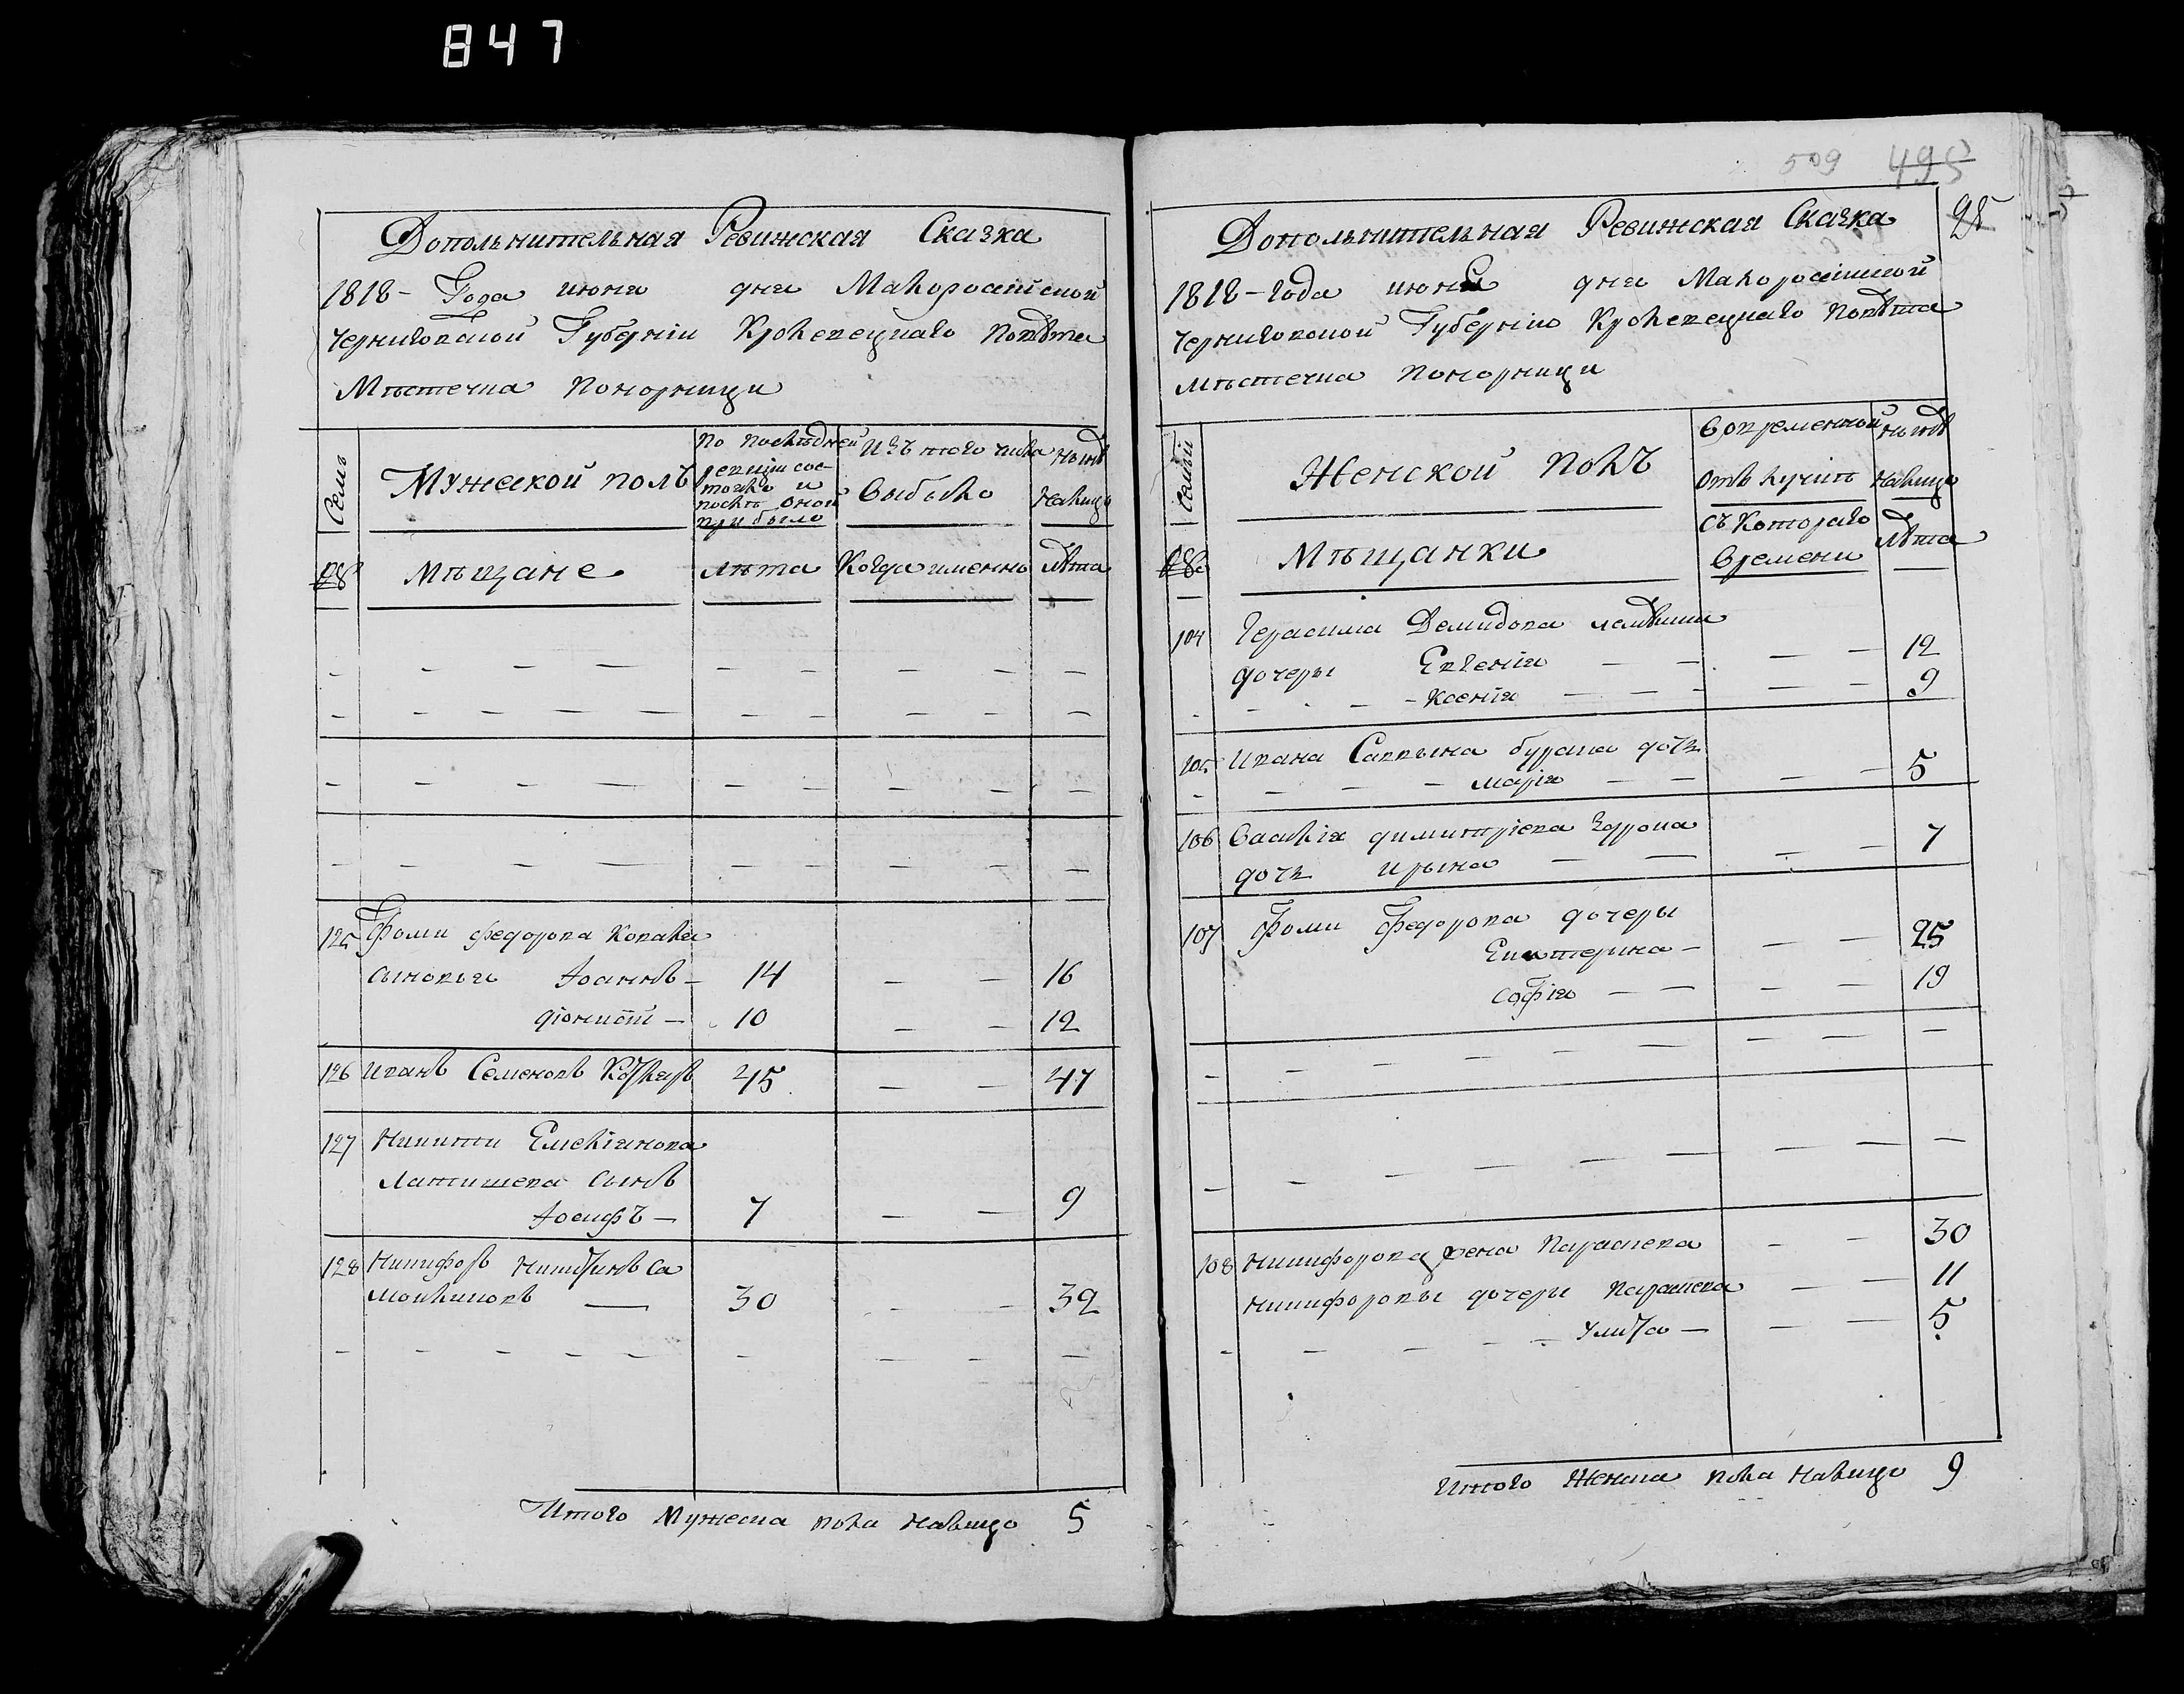 847
Дополнительная Ревижская Сказка
1818 - Года июня дня Малоросійской
Черниговской Губерніи Кролевецкаго Повѣта
Мѣстечка Понорници
Семъи
Мужеской полъ
По последней ревиіи состояло и послѣ оной прибыло
Изъ того числа Выбыло
Нынѣ Налицо
№
Мѣщане
лѣта
Когда именно
лѣта
125 Фоми Федорова Коваля
сыновья Іоаннъ - 14 - - 16
діонисій - 10 - - 12
126 Иванъ Семеновъ 45 - - 47
127 Никити Емеліянова
Латишева сынъ
Іосифъ - 7 - - 9
128 Никифоръ Никитинъ Са
мойликовъ - 30 - - 32
Итого Мужеска пола налицо 5
509 495
Дополнительная Ревижская Сказка
1818 - года июня дня Малоросійской
Черниговской Губерніи Кролевецкаго Повѣта
мѣстечка Понорници
Семьи
Женской полъ
Во временной отлучкѣ
Нынѣ налицо
№
Мѣщанки
Съ Котораго Времени
Лѣта
104 Герасима Демидова
дочеры Евгенія - - - - 12
- - - - Ксенія - - - - - 9
105 Ивана Саввина бурака дочь
- - - - марія - - - - 5
106 Василія димитріева
дочь ирина - - - - 7
107 Фоми Федорова дочеры
Екатерина - - - 25
Софія - - - - 19
108 Никифорова жена Параскева - - 30
Никифоровы дочеры Параскева - - 11
- - Улита - - - 5
Итого Женска пола налицо 9